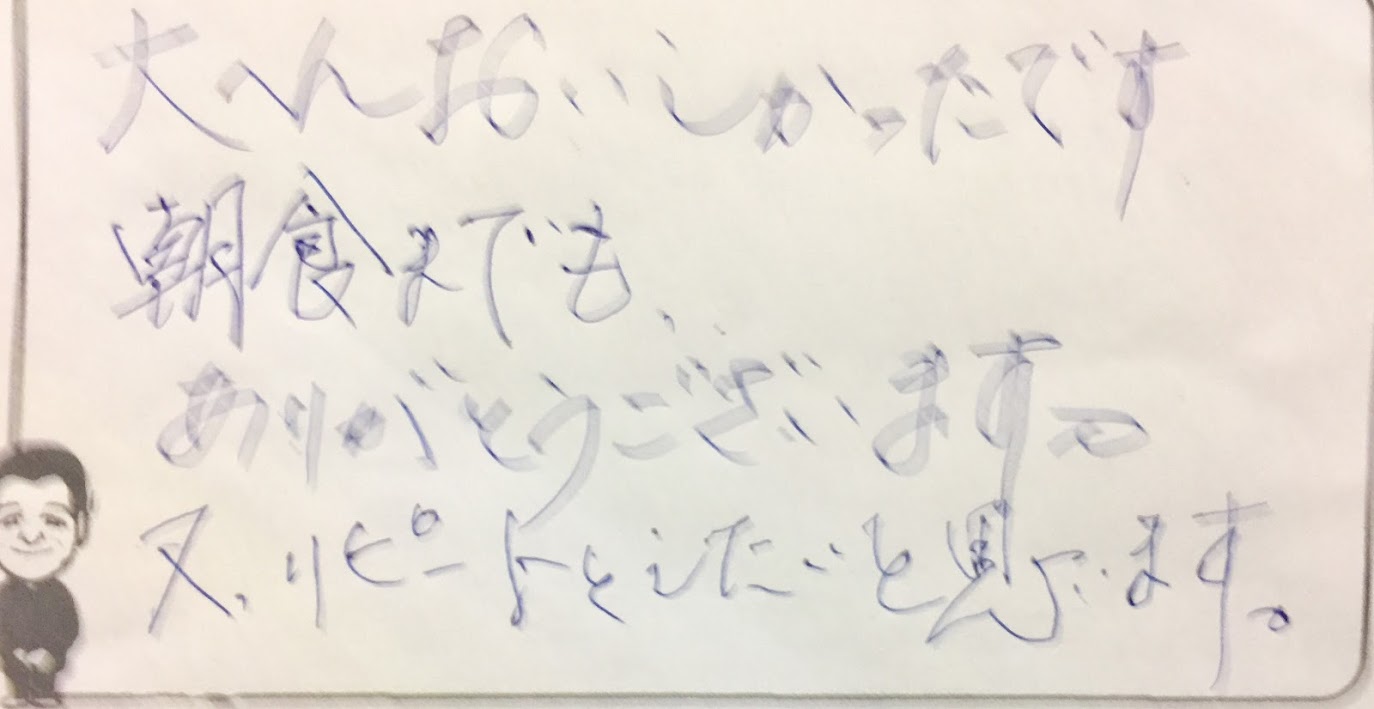 大へんおいしかったです
朝食までも、
ありがとうございます。
又、リピートをしたいと思います。